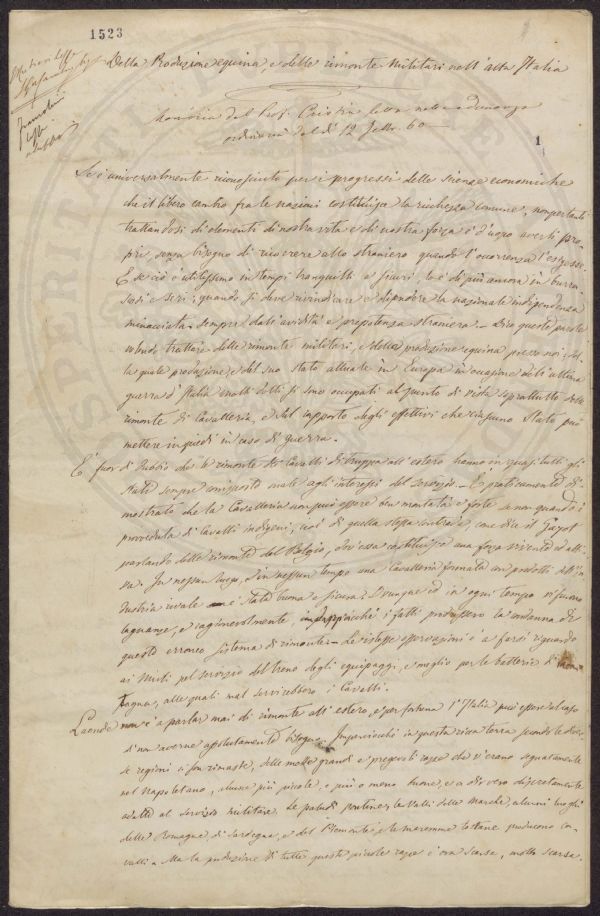 1523
Della Produzione equina, e delle rimonte Militari nell'alta Italia
Memoria del Prof. Cristin letta nella adunanza
ordinaria del dì 12 60
1
Se è universalmente riconosciuto per i progressi delle scienze economiche
che il libero cambio fra le nazioni costituisce la ricchezza comune, nonpertanto
trattandosi di elementi di nostra vita e di nostra forza è d'uopo averli pro-
prii, senza bisogno di ricorrere allo straniero quando l'occorrenza l'esigesse.
E se ciò è utilissimo in tempi tranquilli e sicuri, lo è di più ancora in burra-
scosi e serii; quando si deve rivendicare e difendere la nazionale indipendenza
minacciata sempre dall'avidità e prepotenza straniera. - Dico queste parole
volendo trattare delle rimonte militari, e della produzione equina presso noi; del-
la quale produzione, e del suo stato attuale in Europa in occasione dell'ultima
guerra d'Italia molti dotti si sono occupati al punto di vista soprattutto delle
rimonte di Cavalleria, e del rapporto degli effettivi che ciascuno Stato può
mettere in piedi in caso di guerra.
E' fuor di dubbio che le rimonte di Cavalli di truppa all'estero hanno in quasi tutti gli
stati sempre corrisposto male agli interessi del servizio. - E' praticamente di-
mostrato che la Cavalleria non può essere ben montata e forte se non quando è
provveduta di Cavalli indigeni, cioè di quella stessa contrada, come dice il Gayot
parlando delle rimonte del Belgio, dov'essa costituisce una forza vivente ed atti-
va. In nessun luogo, ed in nessun tempo una Cavalleria formata con prodotti dell'in-
dustria rivale è stata buona e sicura: Dovunque ed in ogni tempo vi furono
lagnanze, e ragionevolmente imperciocchè i fatti produssero la condanna di
questo erroneo sistema di rimonte. - Le istesse osservazioni è a farsi riguardo
ai Muli pel servizio del treno degli equipaggi, e meglio per le batterie di mon-
tagna, alle quali mal servirebbero i Cavalli.
Laonde non è a parlar mai di rimonte all'estero, e per fortuna l'Italia può essere al caso
di non averne assolutamente bisogno. Imperciocchè in questa ricca terra secondo le diver-
se regioni ci son rimaste, delle molte grandi e pregevoli razze che v'erano segnatamente
nel Napoletano, alcune più piccole, e più o meno buone, e a dir vero discretamente
adatte al servizio militare. Le paludi pontine, le Valli delle Marche, alcuni luoghi
delle Romagne, di Sardegna, e del Piemonte, e le maremme toscane producono ca-
valli. - Ma la produzione di tutte queste piccole razze è ora scarsa, molto scarsa.